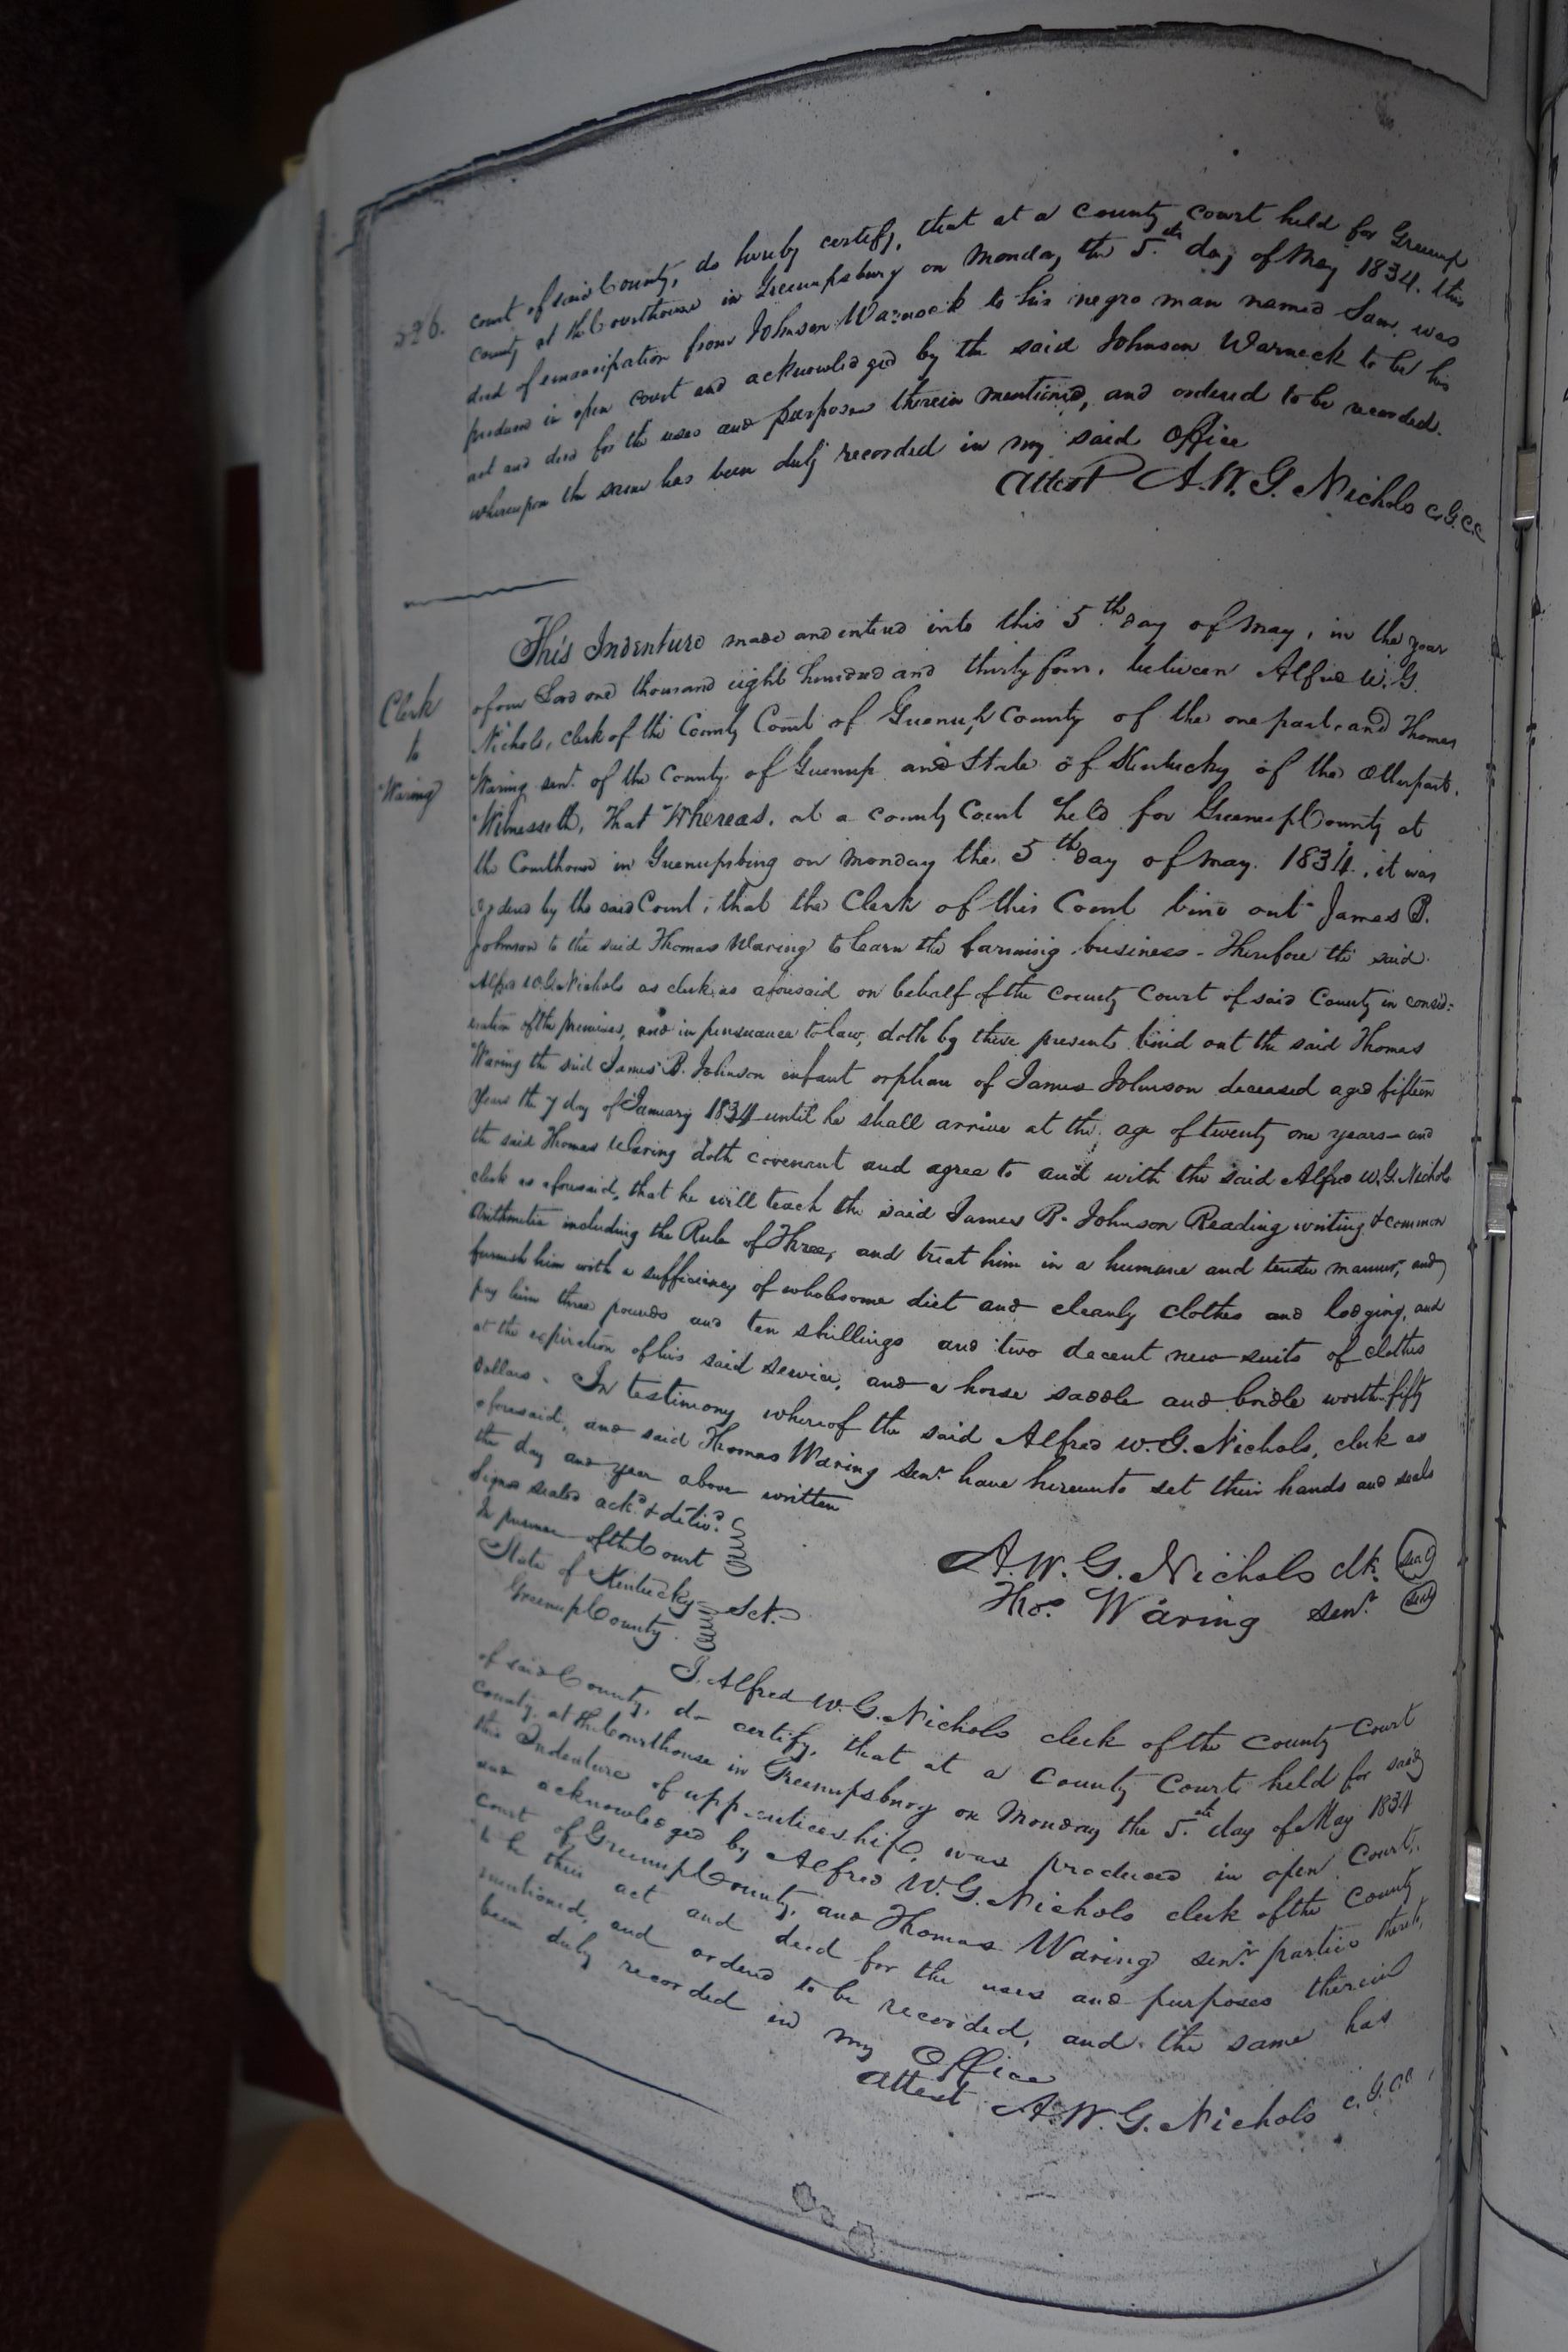 526.
court of said County, do hereby certify, that at a County Court held for Greenup
County at the Courthouse in Greenupsburg on Monday the 5.th day of May 1834. this
deed of emancipation from Johnson Warnock to his negro man named Sam, was
produced in open court and acknowledged by the said Johnson Warnock to be his
act and deed for the uses and purposes therein mentioned, and ordered to be recorded.
whereupon the same has been duly recorded in my said office
Attest A. W. G. Nichols C. G. C. C
Clerk
to
Waring
This Indenture made and entered into this 5.th day of May, in the year
of our Lord one thousand eight hundred and thirty four, between Alfred W. G.
Nichols, clerk of the County Court of Greenup County of the one part, and Thomas
Waring senr. of the County of Greenup and State of Kentucky of the other part.
Witnesseth, That Whereas, at a County Court held for Greenup County at
the Courthouse in Greenupsburg on Monday the 5.th day of May. 1834, it was
ordered by the said Court, that the Clerk of this Court bind out James B.
Johnson to the said Thomas Waring to learn the farming business - Therefore the said
Alfred W. G. Nichols as clerk as aforesaid on behalf of the County Court of said County in consid-
eration of the premises, and in pursuance to law, doth by these presents bind out the said Thomas
Waring the said James B. Johnson infant orphan of James Johnson deceased aged fifteen
years the 7 day of January 1834 until he shall arrive at the age of twenty one years - and
the said Thomas Waring doth covenant and agree to and with the said Alfred W. G. Nichols
clerk as aforesaid, that he will teach the said James B. Johnson Reading writing & common
Arithmetic including the Rule of Three, and treat him in a humane and tender manner, and
furnish him with a sufficiency of wholesome diet and cleanly clothes and lodging, and
pay him three pounds and ten shillings and two decent new suits of clothes
at the expiration of his said service, and a horse saddle and bridle worth fifty
Dollars. In testimony whereof the said Alfred W. G. Nichols, clerk as
aforesaid, and said Thomas Waring senr. have hereunto set their hands and seals
the day and year above written
Signed sealed ackd. & delivd.
In presence of the Court
A. W. G. Nichols clk. seal
Thos. Waring senr. seal
State of Kentucky
Greenup County. Sct.
I. Alfred W. G. Nichols clerk of the County Court
of said County, do certify, that at a County Court held for said
County, at the Courthouse in Greenupsburg on Monday the 5.th day of May 1834
this Indenture of apprenticeship, was produced in open Court,
and acknowledged by Alfred W. G. Nichols clerk of the County
Court of Greenup County, and Thomas Waring senr. parties thereto,
to be their act and deed for the uses and purposes therein
mentioned, and ordered to be recorded, and the same has
been duly recorded in my Office
Attest A. W. G. Nichols C. G. C. C.